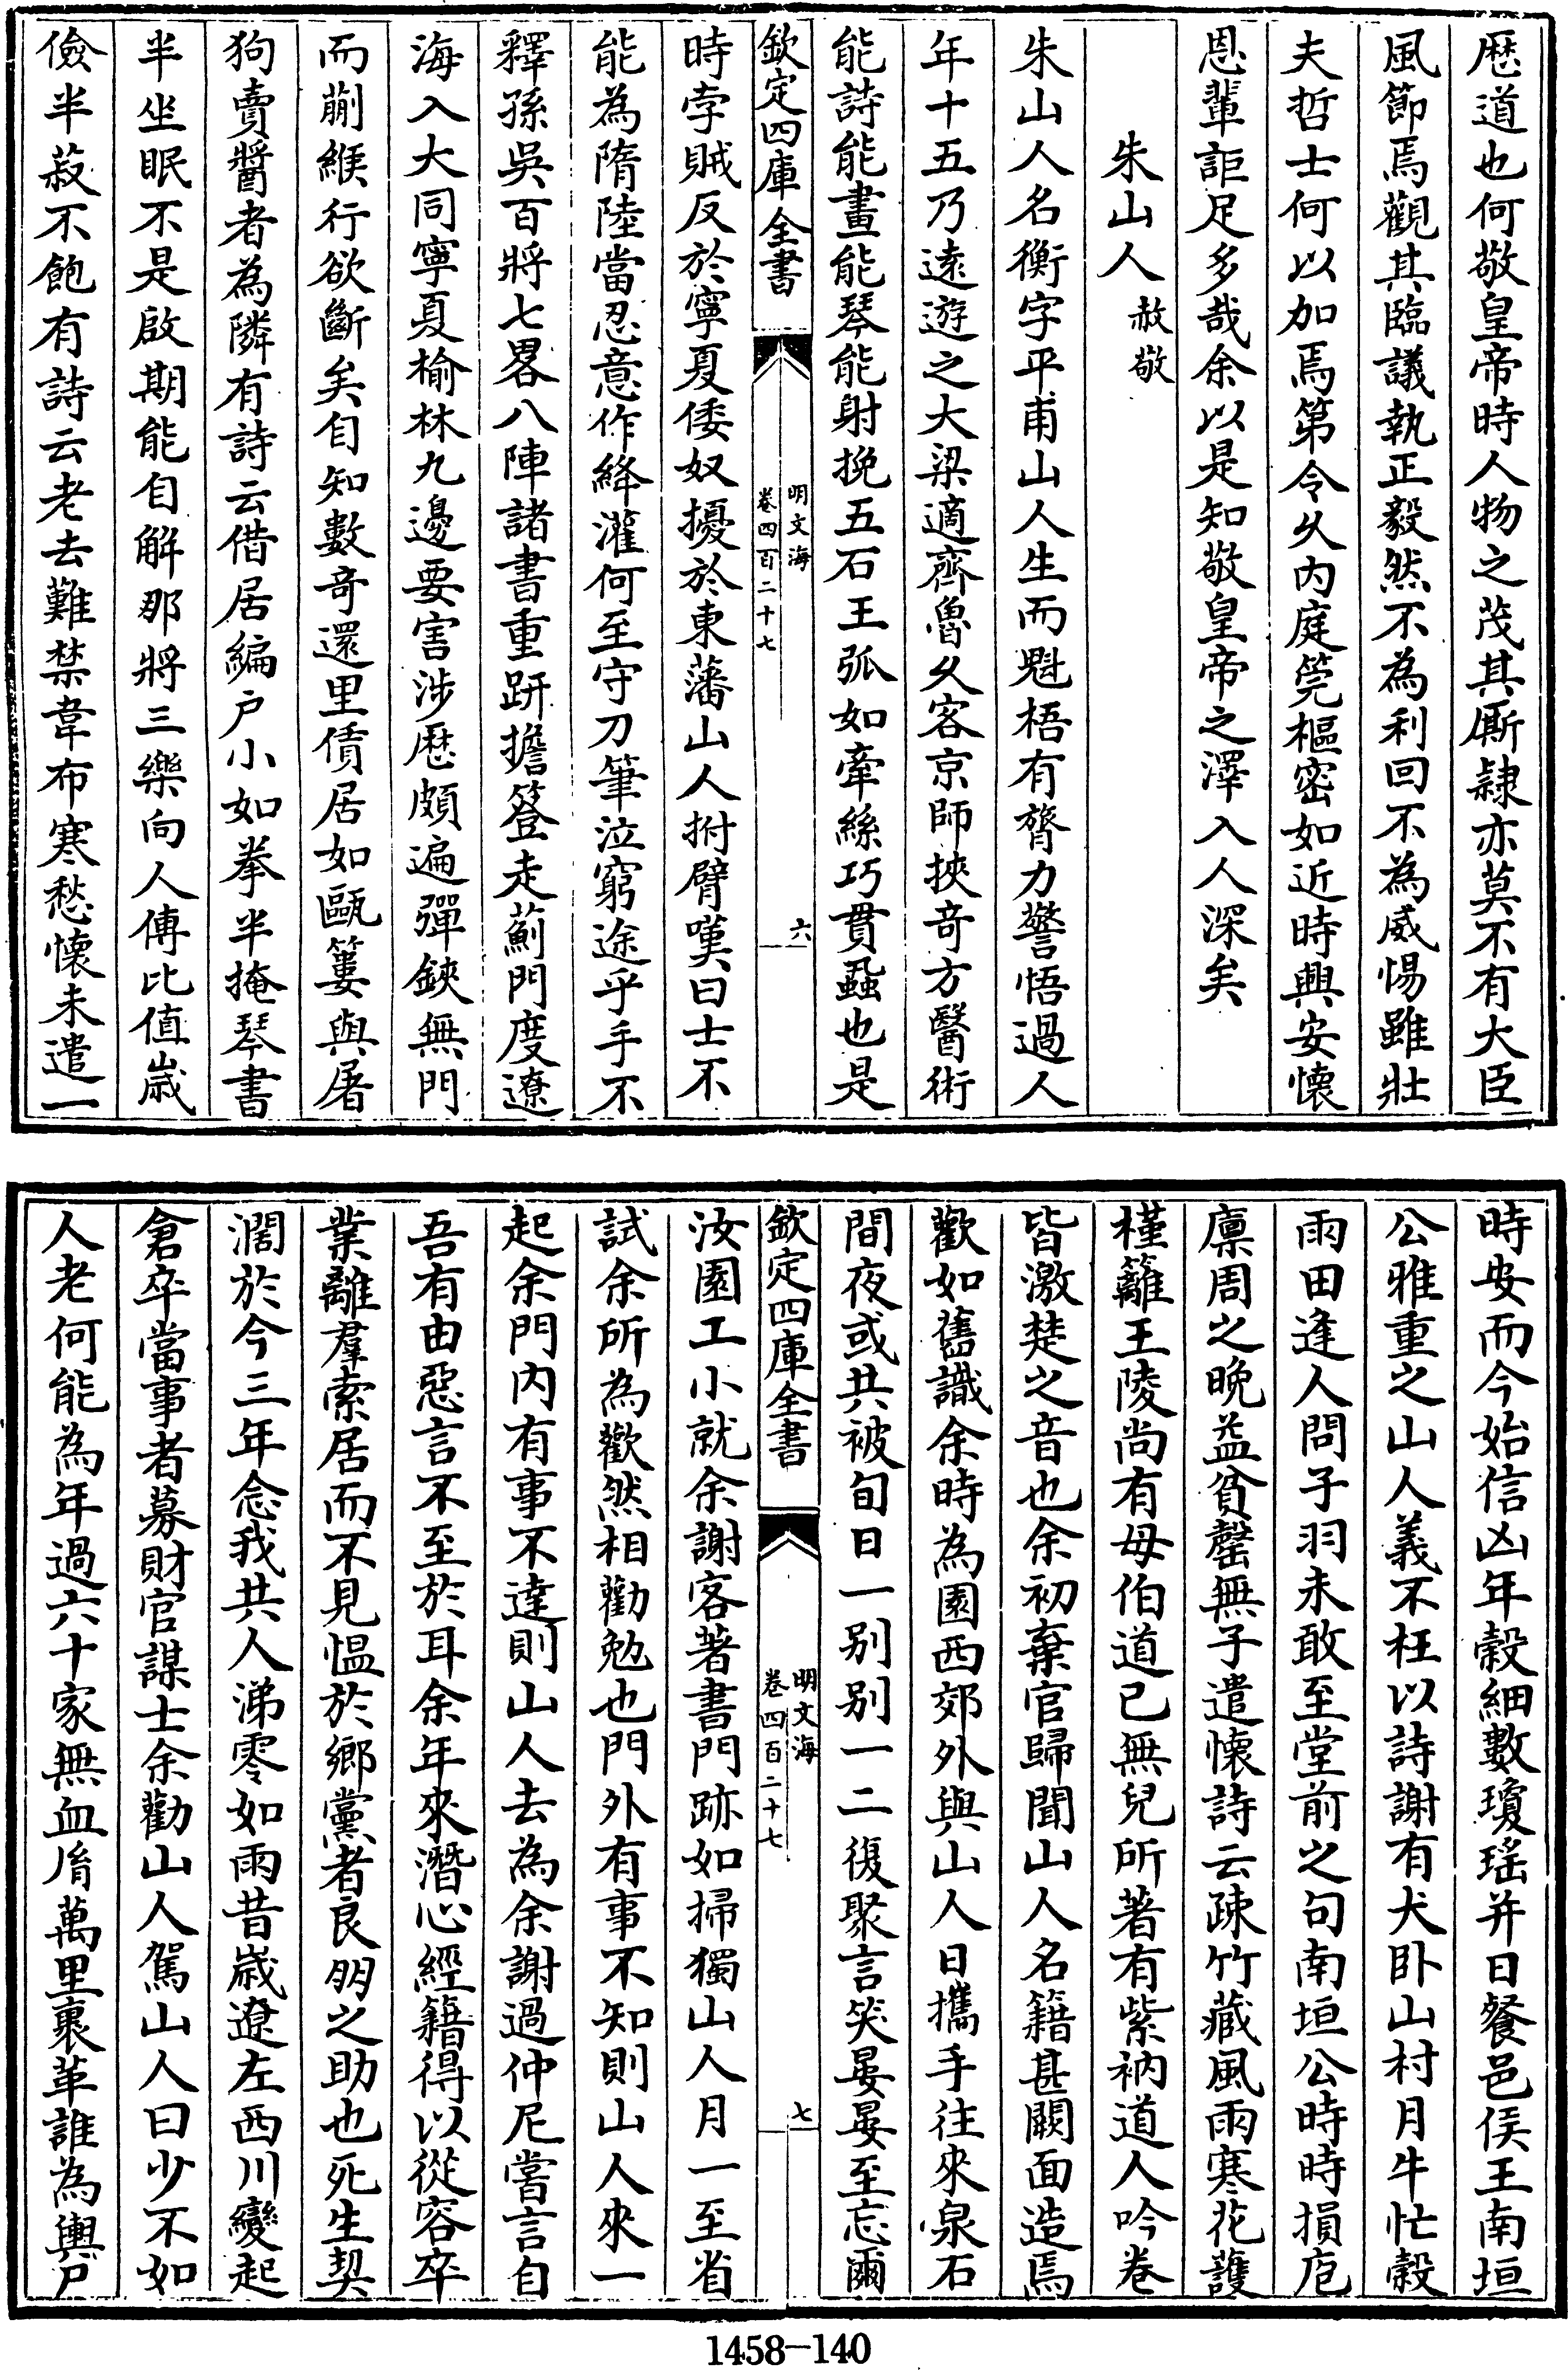 歴道也何敬皇帝時人物之茂其厮隷亦莫不有大臣
風節焉觀其臨議執正毅然不為利回不為威惕雖壯
夫哲士何以加焉第令乆内庭筦樞密如近時興安懷
恩輩詎足多哉余以是知敬皇帝之澤入人深矣
朱山人 赦敬
朱山人名衡字平甫山人生而魁梧有膂力警悟過人
年十五乃逺遊之大梁適齊魯乆客京師挾竒方醫術
能詩能畫能琴能射挽五石王弧如牽絲巧貫蝨也是
欽定四庫全書
明文海
卷四百二十七
六
時孛賊反於寧夏倭奴擾於東藩山人拊臂嘆曰士不
能為隋陸當忍意作絳灌何至守刀筆泣窮途乎手不
釋孫吳百將七畧八陣諸書重趼擔簦走薊門度遼
海入大同寧夏榆林九邊要害涉歴頗遍彈鋏無門
而蒯緱行欲斷矣自知數竒還里僨居如甌窶與屠
狗賣醬者為隣有詩云借居編户小如拳半掩琴書
半坐眠不是啟期能自解那將三樂向人傳比值嵗
儉半菽不飽有詩云老去難禁韋布寒愁懷未遣一
時安而今始信凶年穀細數瓊瑶并日餐邑侯王南垣
公雅重之山人義不枉以詩謝有犬卧山村月牛忙榖
雨田逢人問子羽未敢至堂前之句南垣公時時損庖
廪周之晚益貧罄無子遣懷詩云疎竹藏風雨寒花護
槿籬王陵尚有母伯道已無兒所著有紫衲道人吟卷
皆激楚之音也余初棄官歸聞山人名籍甚闕面造焉
歡如舊識余時為園西郊外與山人日攜手往來泉石
間夜或共被旬日一别别一二復聚言笑晏晏至忘爾
欽定四庫全書
明文海
卷四百二十七
七
汝園工小就余謝客著書門跡如掃獨山人月一至省
試余所為歡然相勸勉也門外有事不知則山人來一
起余門内有事不達則山人去為余謝過仲尼嘗言自
吾有由惡言不至於耳余年來潛心經籍得以從容卒
業離羣索居而不見愠於鄉黨者良朋之助也死生契
濶於今三年念我共人涕零如雨昔嵗遼左西川變起
倉卒當事者募財官謀士余勸山人駕山人曰少不如
人老何能為年過六十家無血𦙍萬里裹革誰為輿尸
1458—140